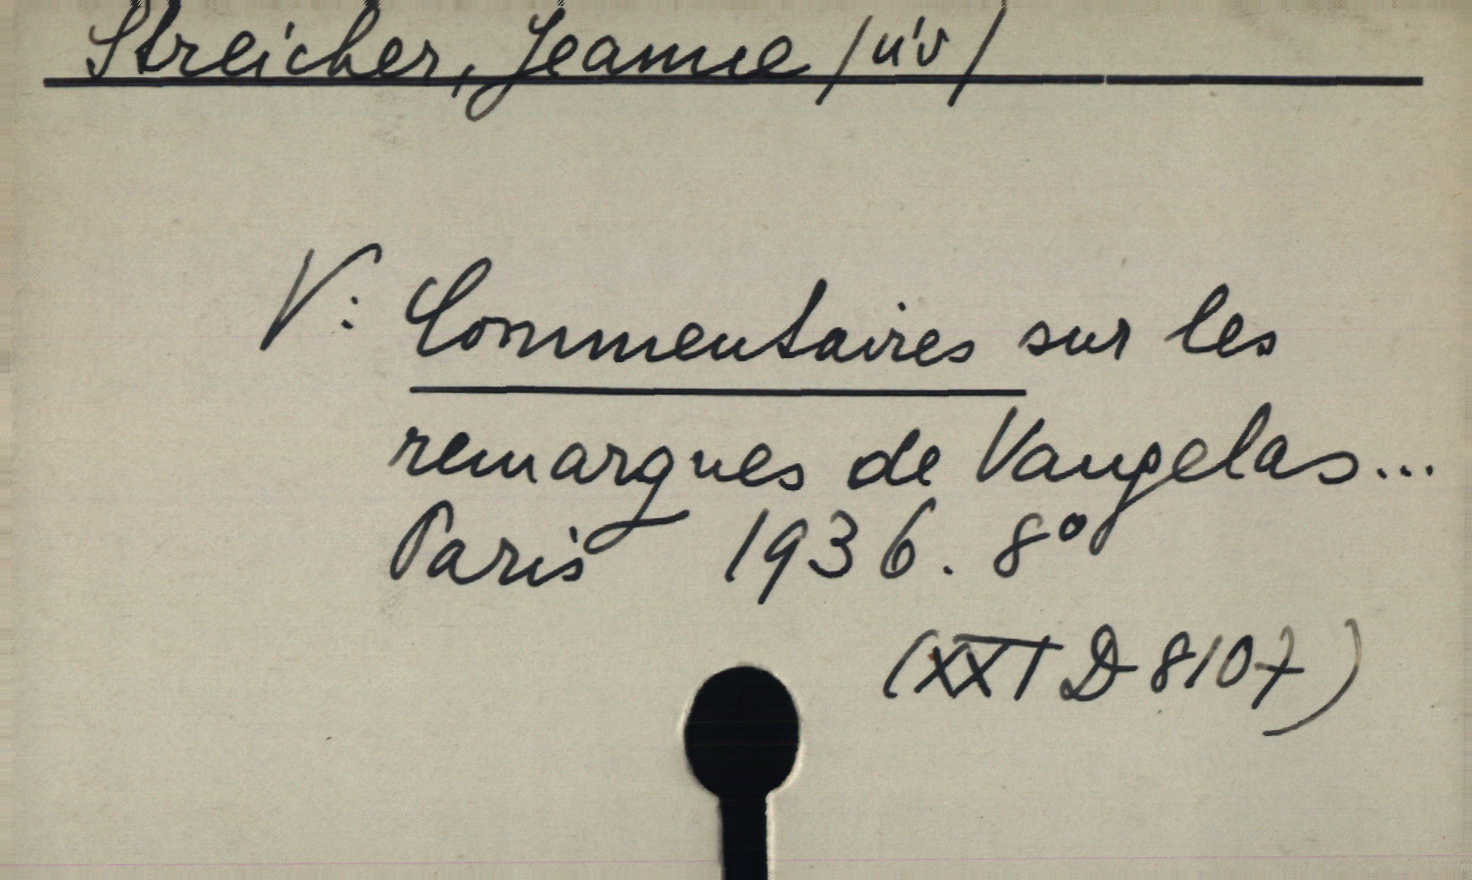 Streicher, Jeanne /úv/
V: Commentaires sur les
remarques de Vaugelas...
Paris 1936. 8°
(XXI D 8107)